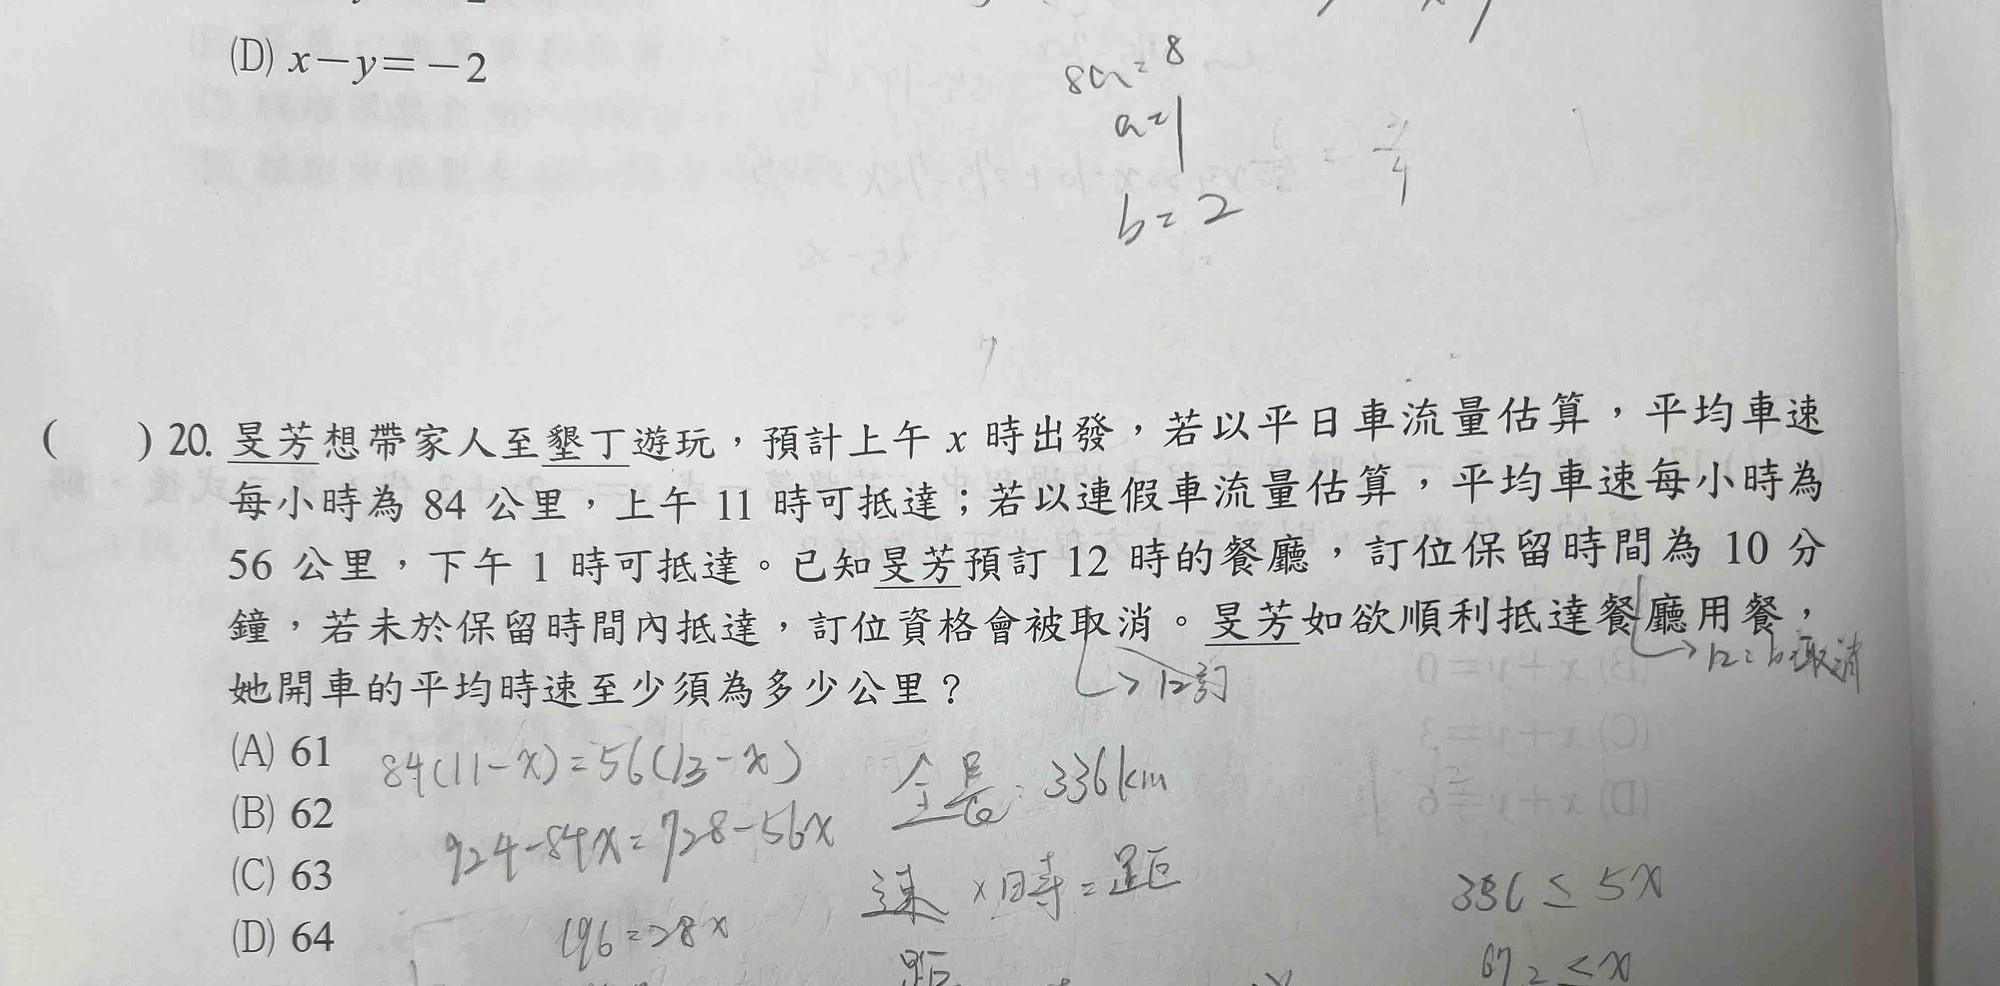 (D) x－y＝－2
8a=8
a=1
b=2
(　　) 20. 旻芳想帶家人至墾丁遊玩，預計上午 x 時出發，若以平日車流量估算，平均車速
每小時為 84 公里，上午 11 時可抵達；若以連假車流量估算，平均車速每小時為
56 公里，下午 1 時可抵達。已知旻芳預訂 12 時的餐廳，訂位保留時間為 10 分
鐘，若未於保留時間內抵達，訂位資格會被取消。旻芳如欲順利抵達餐廳用餐，
12:10取消
她開車的平均時速至少須為多少公里？
12訂
(A) 61
84(11-x)=56(13-x)
全長:336km
(B) 62
924-84x=728-56x
(C) 63
速×時=距
336≤5x
(D) 64
196=28x
距
67.2≤x